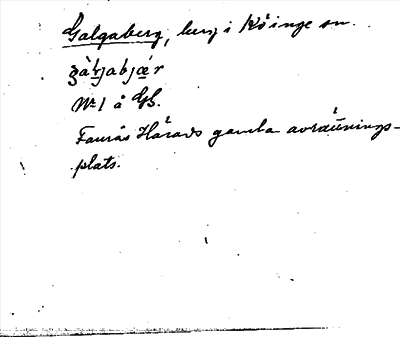 Galgaberg, berg i Köinge sn.
gàl̥jabjær
№ 1 å GS.
Faurås Härads gamla avrättnings-
plats.